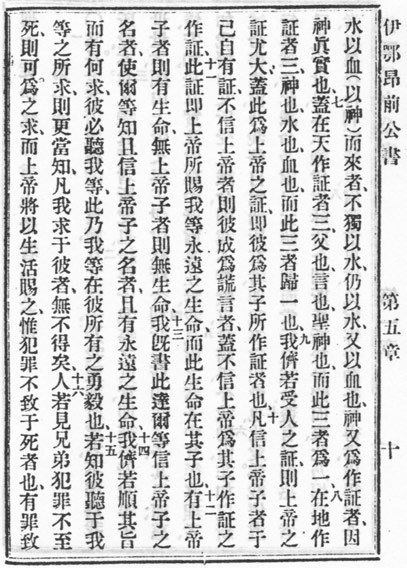 伊鄂昂前公書 第五章 十
水以血(以神)而來者、不獨以水、仍以水又以血也、神又爲作証者、因
神眞實也、七蓋在天作証者三、父也、言也、聖神也、而此三者爲一、八在地作
証者三、神也、水也、血也、而此三者歸一也、九我儕若受人之証、則上帝之
証尤大、蓋此爲上帝之証、即彼爲其子所作証者也、十凡信上帝子者、于
己自有証、不信上帝者、則彼成爲謊言者、蓋不信上帝爲其子作証之
作証、十一此証即上帝所賜我等永遠之生命、而此生命在其子也、十二有上帝
子者、則有生命、無上帝子者、則無生命、十三我旣書此達爾等信上帝子之
名者、使爾等知且信上帝子之名者、且有永遠之生命、十四我儕若順其旨
而有何求、彼必聽我等、此乃我等在彼所有之勇毅也、十五若知彼聽于我
等之所求、則更當知凡我求于彼者、無不得矣、十六人若見兄弟犯罪不至
死、則可爲之求、而上帝將以生活賜之、惟犯罪不致于死者也、有罪致